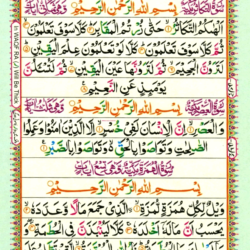 بِسْمِ اللهِ الرَّحْمٰنِ الرَّحِيْمِ
اَلْهٰىكُمُ التَّكَاثُرُ حَتّٰى زُرْتُمُ الْمَقَابِرَ كَلَّا سَوْفَ تَعْلَمُوْنَ
ثُمَّ كَلَّا سَوْفَ تَعْلَمُوْنَ كَلَّا لَوْ تَعْلَمُوْنَ عِلْمَ الْيَقِيْنِ
لَتَرَوُنَّ الْجَحِيْمَ ثُمَّ لَتَرَوُنَّهَا عَيْنَ الْيَقِيْنِ ثُمَّ لَتُسْئَلُنَّ
يَوْمَئِذٍ عَنِ النَّعِيْمِ
بِسْمِ اللهِ الرَّحْمٰنِ الرَّحِيْمِ
وَالْعَصْرِ اِنَّ الْاِنْسَانَ لَفِيْ خُسْرٍ اِلَّا الَّذِيْنَ اٰمَنُوْا وَعَمِلُوا
الصّٰلِحٰتِ وَتَوَاصَوْا بِالْحَقِّ وَتَوَاصَوْا بِالصَّبْرِ
بِسْمِ اللهِ الرَّحْمٰنِ الرَّحِيْمِ
وَيْلٌ لِّكُلِّ هُمَزَةٍ لُّمَزَةٍ الَّذِيْ جَمَعَ مَالًا وَّعَدَّدَهٗ
يَحْسَبُ اَنَّ مَالَهٗٓ اَخْلَدَهٗ كَلَّا لَيُنْۢبَذَنَّ فِي الْحُطَمَةِ